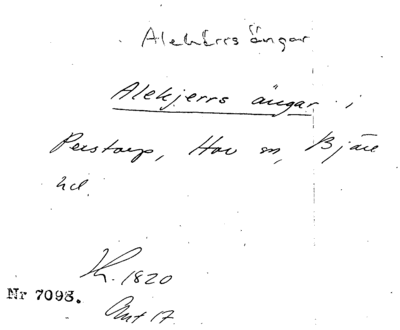 Alekärrs ängar
Alekjerrs ängar i
Perstorp, Hov sn, Bjäre
hd.
K. 1820
Nr 7098.
Akt 17